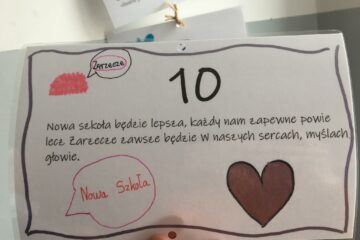 Zarzecze
10
Nowa szkoła będzie lepsza, każdy nam zapewne powie
lecz Zarzecze zawsze będzie w naszych sercach, myślach,
głowie.
Nowa Szkoła